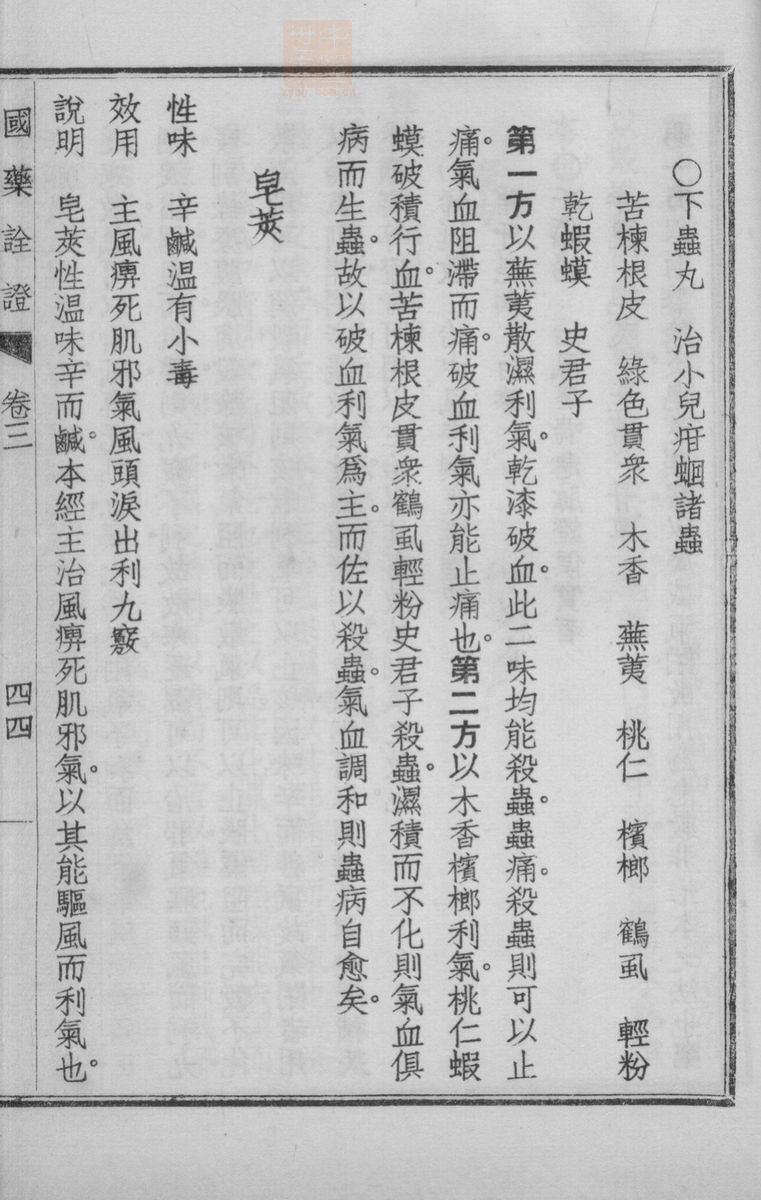 〇下蟲丸　治小兒疳蛔諸蟲
苦楝根皮　綠色貫衆　木香　蕪荑　桃仁　檳榔　鶴虱　輕粉
乾蝦蟆　史君子
第一方以蕪荑散濕利氣。乾漆破血。此二味均能殺蟲。蟲痛。殺蟲則可以止
痛。氣血阻滯而痛。破血利氣亦能止痛也。第二方以木香檳榔利氣。桃仁蝦
蟆破積行血。苦楝根皮貫衆鶴虱輕粉史君子殺蟲。濕積而不化則氣血俱
病而生蟲。故以破血利氣爲主。而佐以殺蟲。氣血調和則蟲病自愈矣。
皂莢
性味　辛鹹溫有小毒
效用　主風痹死肌邪氣風頭淚出利九竅
說明　皂莢性溫味辛而鹹。本經主治風痹死肌邪氣。以其能驅風而利氣也。
國藥詮證　卷三　四四